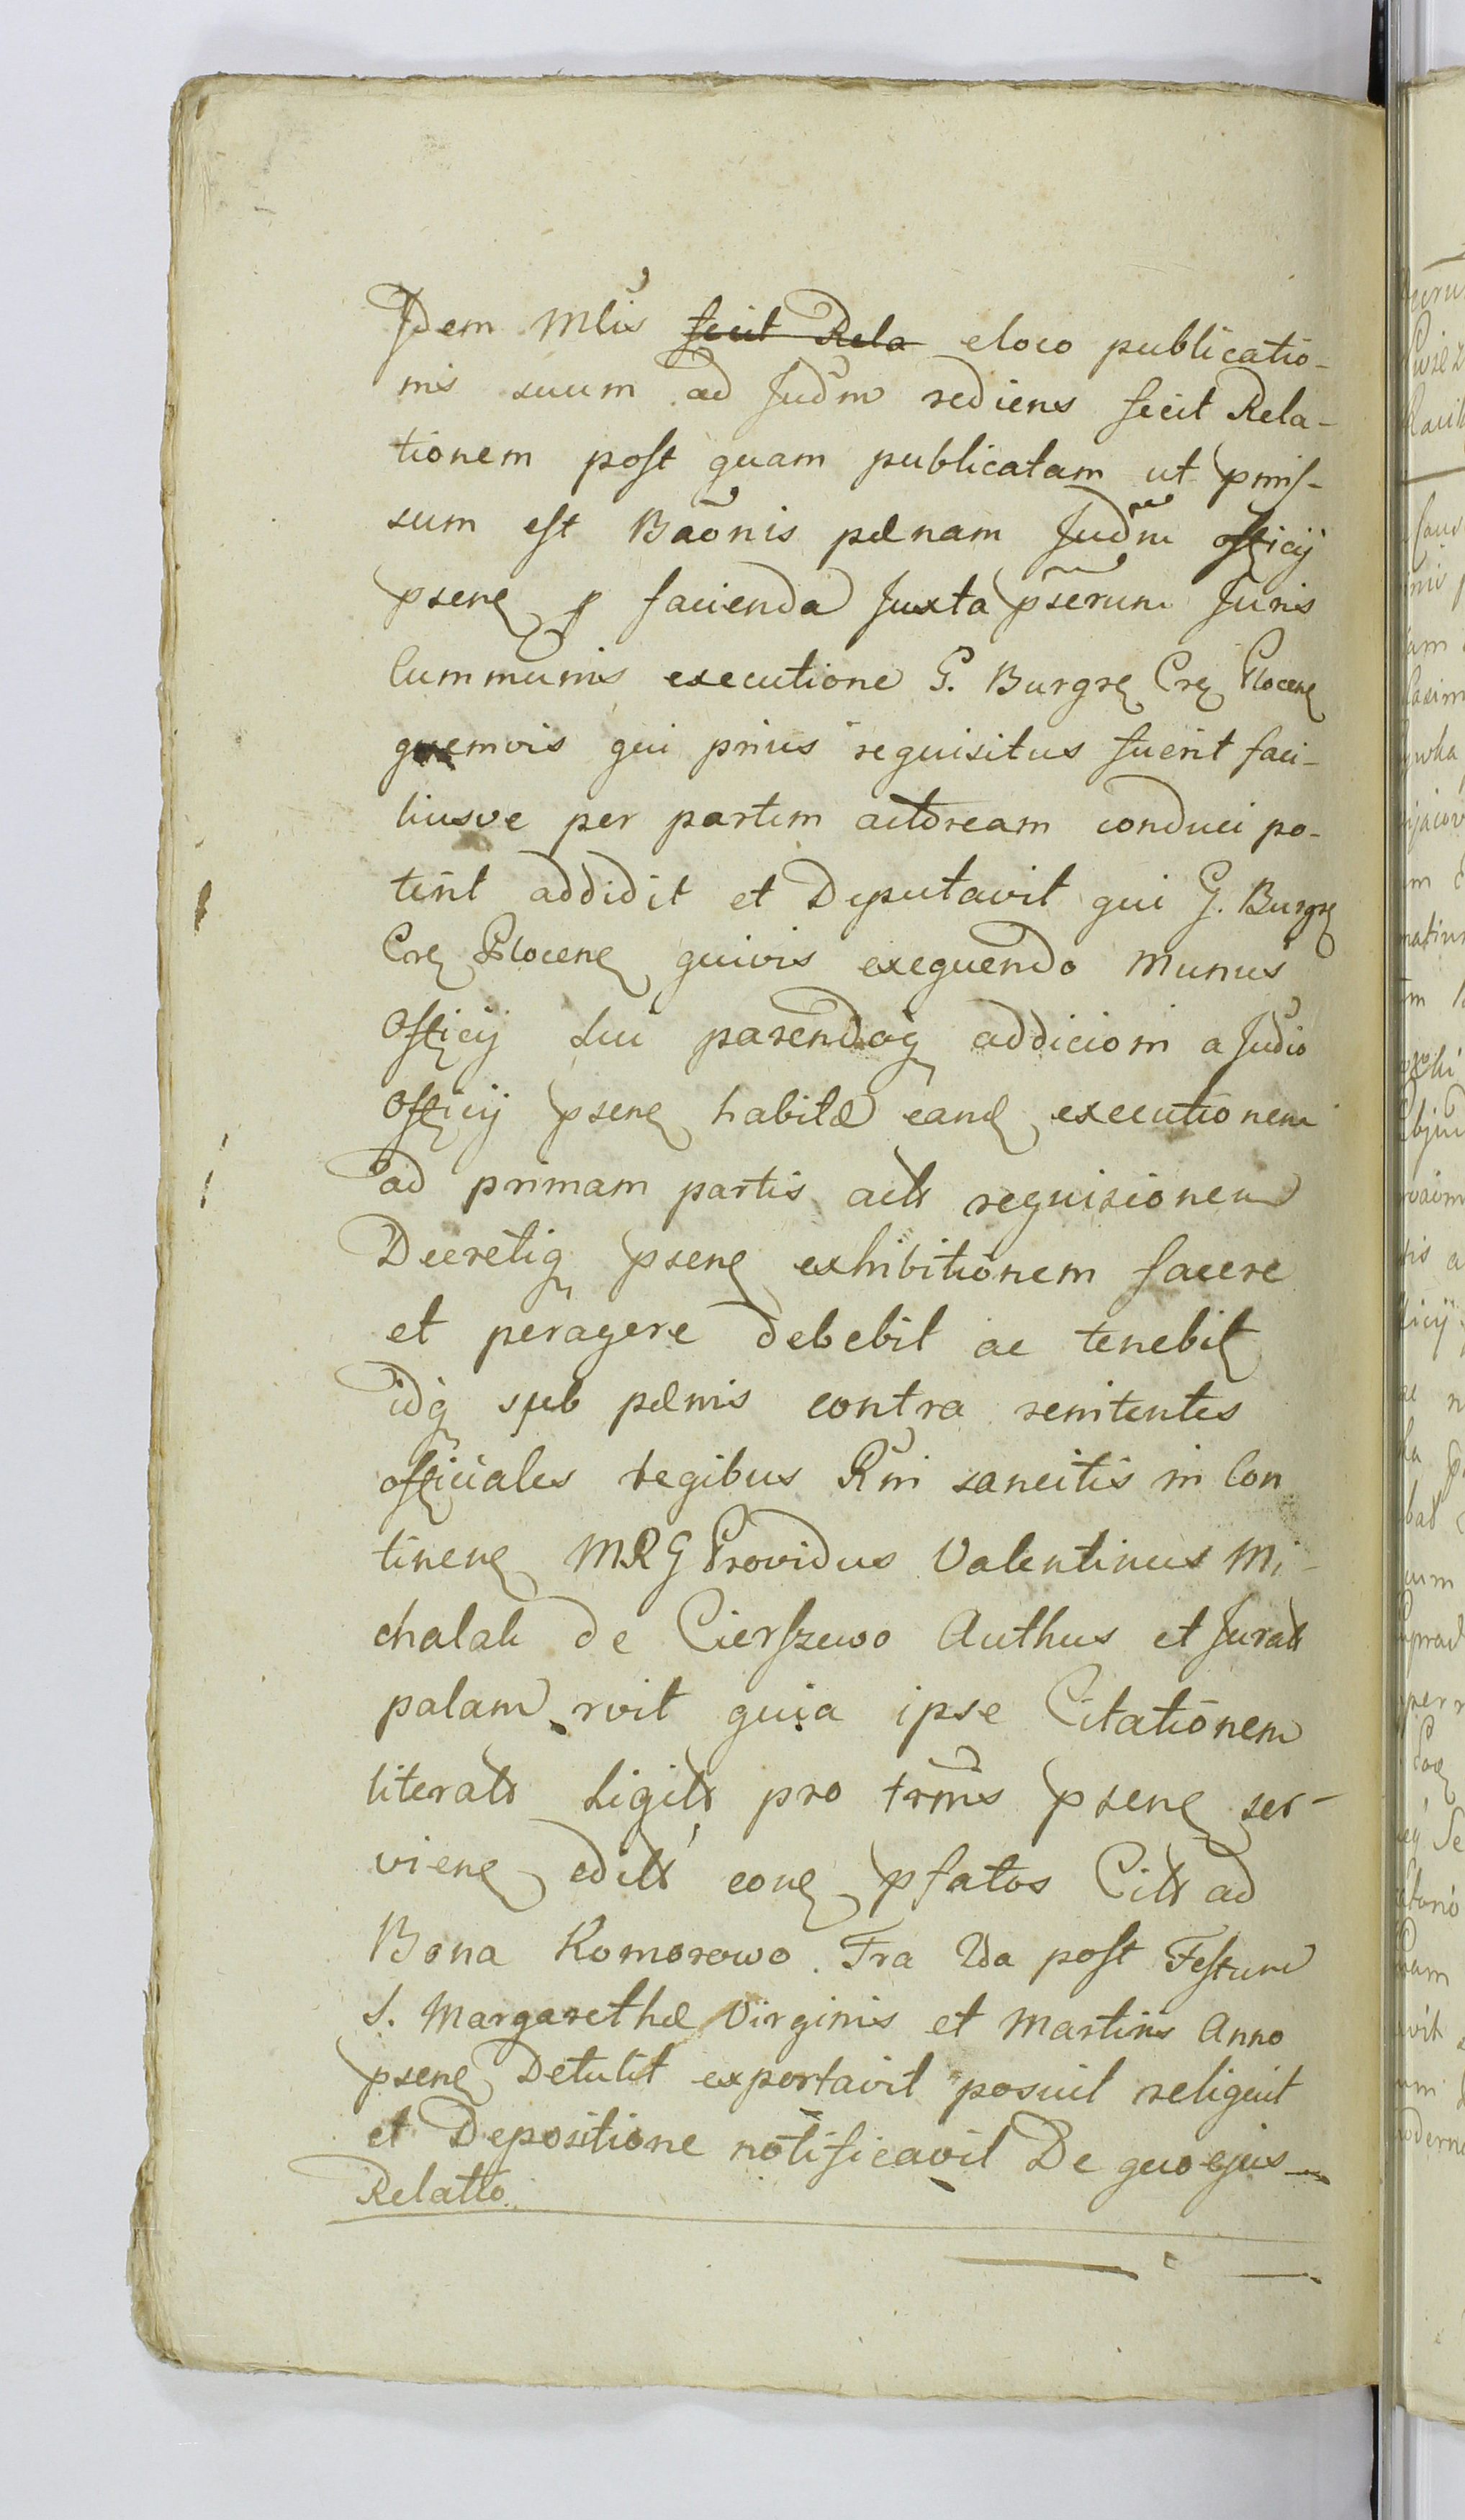 Idem Mlis fecit Rela eloco publicatio-
nis suum ad Judm rediens fecit Rela-
tionem post quam publicatam ut pmis-
sum est Baõnis pænam Judm officij
psene p facienda Juxta pserum Juris
Cummunis executione G. Burgre Cre Plocene
quemvis qui prius requisitus fuerit faci-
liusve per partem actoream conduci po-
terit addidit et Deputavit qui G. Burgre
Cre Plocene quivis exequendo munus
Officij sui parendoq addiciom a Judio
Officij psene habitæ eand executionem
ad primam partis act requisionem
Decretiq psene exhibitionem facere
et peragere debebit ac tenebit
idq sub pænis contra renitentes
officiales legibus Rni sancitis in Con
tinene MRG Providus Valentinus Mi-
chalak de Cierszewo Authus et Jurat
palam rvit quia ipse Citationem
literat Sigilt pro trms psene ser-
viene edit eone pfatos Citt ad
Bona Komorowo. Fra 2da post Festum
S. Margarethæ Virginis et Martiris Anno
psene Detulit exportavit posuit reliquit
et Depositione notificavit De quo ejus
Relatio.